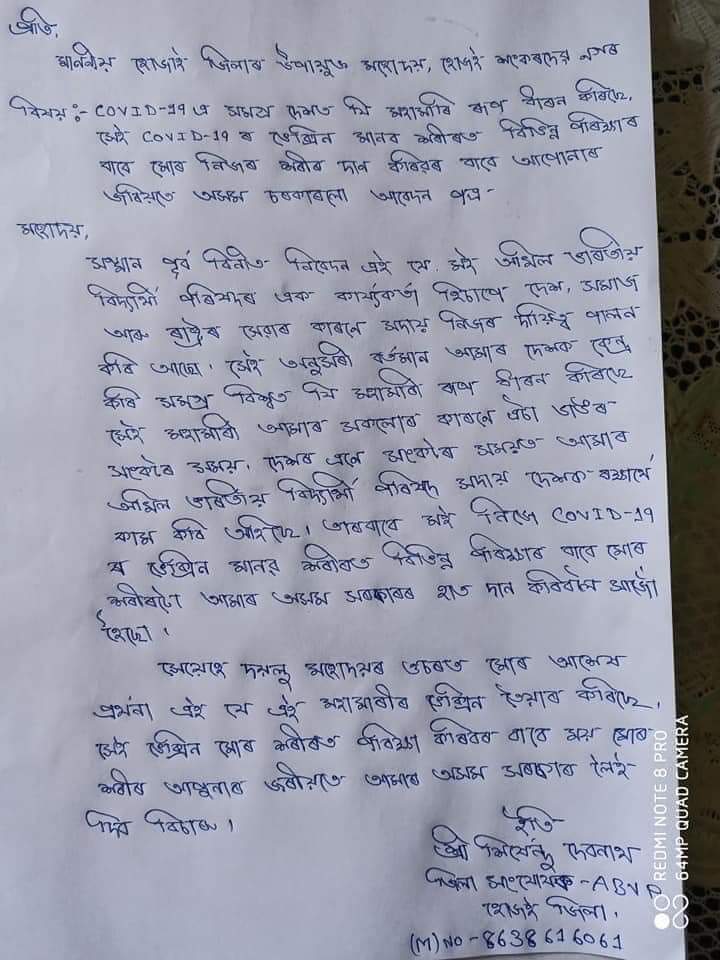 প্ৰতি,
মাননীয় হোজাই জিলাৰ উপায়ুক্ত মহোদয়, হোজাই শংকৰদেৱ নগৰ
বিষয়:- COVID-19 এ সমগ্ৰ দেশত যি মহামাৰি ৰূপ ধাৰন কৰিছে,
সেই COVID-19 ৰ ভেক্সিন মানৱ শৰীৰত বিভিন্ন পৰিক্ষাৰ
বাবে মোৰ নিজৰ শৰীৰ দান কৰিবৰ বাবে আপোনাৰ
জৰিয়তে অসম চৰকাৰলৈ আবেদন পত্ৰ-
মহোদয়,
সন্মান পূৰ্বক বিনীত নিবেদন এই যে, মই অখিল ভাৰতীয়
বিদ্যাৰ্থী পৰিষদৰ এক কাৰ্য্যকৰ্তা হিচাপে দেশ, সমাজ
আৰু ৰাষ্ট্ৰৰ সেৱাৰ কাৰনে সদায় নিজৰ দায়িত্ব পালন
কৰি আছো। সেই অনুসৰি বৰ্তমান আমাৰ দেশক কেন্দ্ৰ
কৰি সমগ্ৰ বিশ্বত যি মহামাৰী ৰূপ ধাৰন কৰিছে
সেই মহামাৰী আমাৰ সকলোৰ কাৰনে এটা ডাঙৰ
সংকটৰ সময়, দেশৰ এনে সংকটৰ সময়ত আমাৰ
অখিল ভাৰতীয় বিদ্যাৰ্থী পৰিষদে সদায় দেশক ৰক্ষাৰ্থে
কাম কৰি আহিছে। তাৰবাবে মই নিজে COVID-19
ৰ ভেক্সিন মানৱ শৰীৰত বিভিন্ন পৰিক্ষাৰ বাবে মোৰ
শৰীৰটো আমাৰ অসম সৰকাৰৰ হাত দান কৰিবলৈ সাজোঁ
হৈছো।
সেয়েহে দয়ালু মহোদয়ৰ ওচৰত মোৰ
এই যে এই মহামাৰীৰ ভেক্সিন তৈয়াৰ কৰিছে,
সেই ভেক্সিন মোৰ শৰীৰত পৰিক্ষা কৰিবৰ বাবে ময় মোৰ
শৰীৰ আপুনাৰ জৰীয়তে আমাৰ অসম সৰকাৰ লৈই
দিব বিচাৰু।
ইতি
শ্ৰী দেবনাথ
জিলা সংযোজক - ABVP
হোজাই জিলা।
(M) NO - 8638616061
REDMI NOTE 8 PRO
64MP QUAD CAMERA